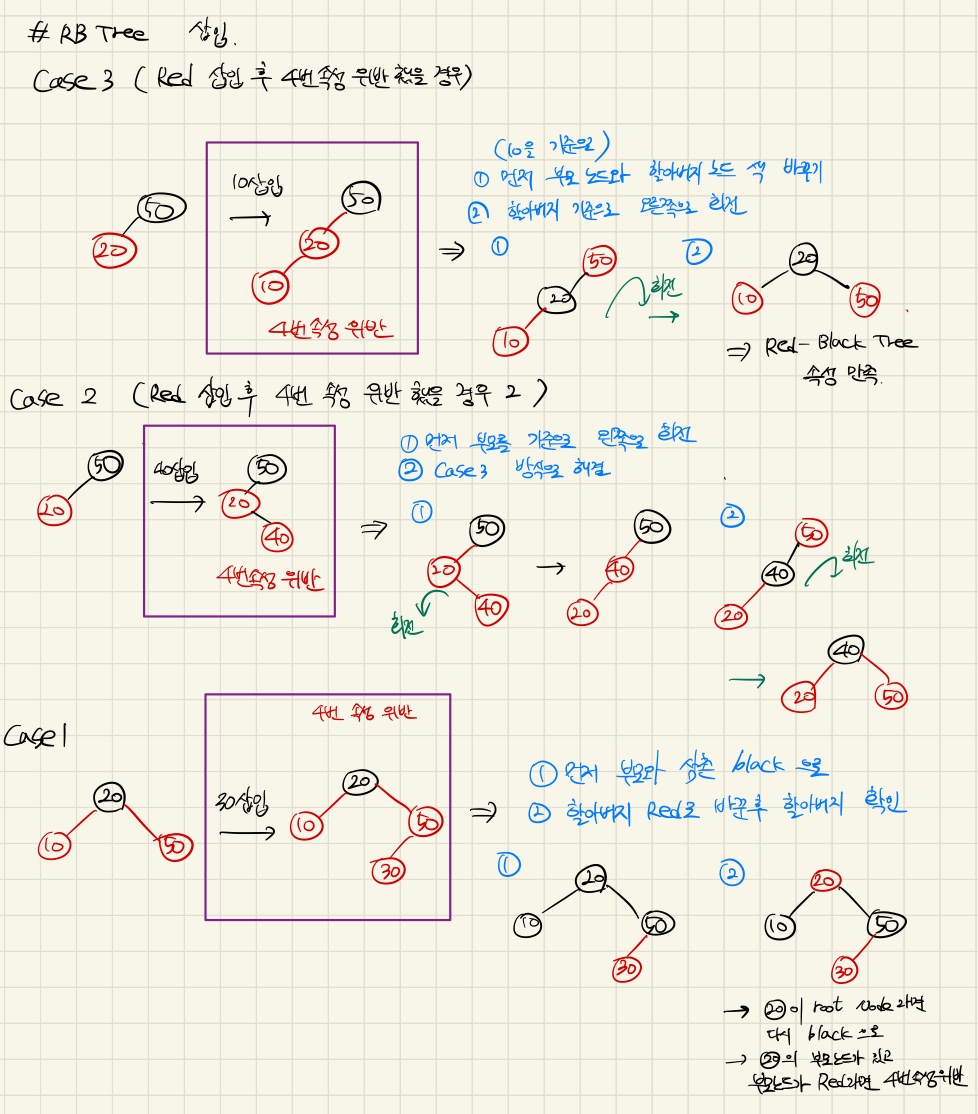 # RB Tree 삽입.
Case 3 (Red 삽입 후 4번 속성 위반 했을 경우)
50
20
10삽입
50
20
10
4번 속성 위반
(10을 기준으로)
① 먼저 부모 노드와 할아버지 노드 색 바꾸기
② 할아버지 기준으로 오른쪽으로 회전
①
50
20
10
회전
②
20
10
50
⇒ Red-Black Tree
속성 만족.
Case 2 (Red 삽입 후 4번 속성 위반 했을 경우 2)
50
20
40삽입
50
20
40
4번 속성 위반
① 먼저 부모를 기준으로 왼쪽으로 회전
② Case 3 방식으로 해결
①
50
20
40
회전
50
40
20
②
50
40
20
회전
40
20
50
Case 1
20
10
50
30삽입
4번 속성 위반
20
10
50
30
① 먼저 부모와 삼촌 black 으로
② 할아버지 Red로 바꾼후 할아버지 확인
①
20
10
50
30
②
20
10
50
30
→ 20이 root node라면
다시 black으로
→ 20의 부모노드가 있고
부모노드가 Red라면 4번속성위반